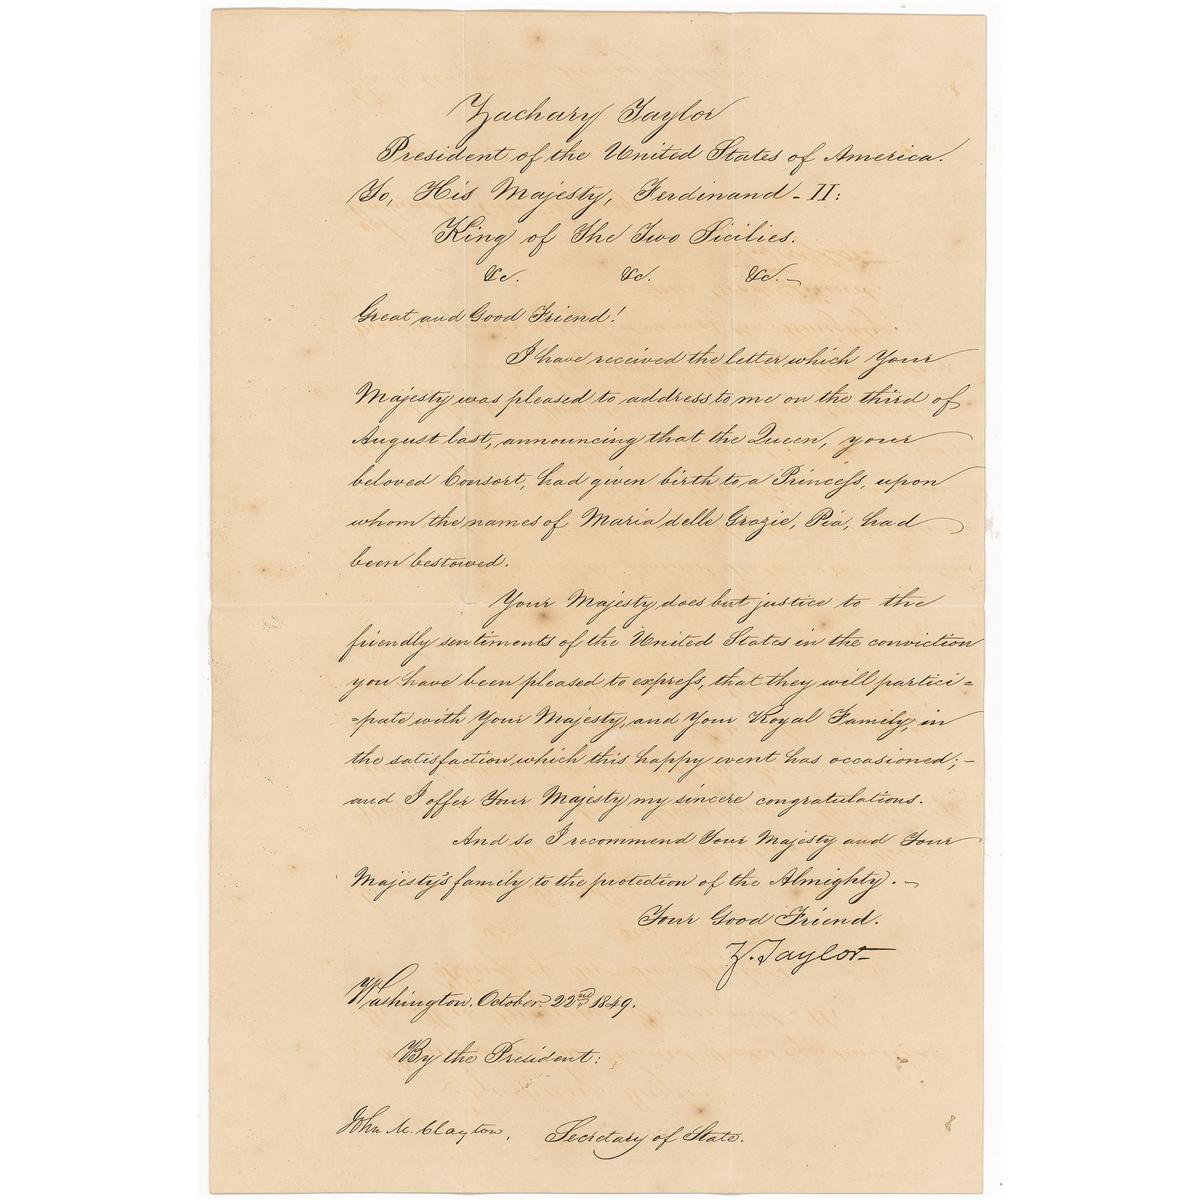 Zachary Taylor
President of the United States of America.
To, His Majesty, Ferdinand - II:
King of The Two Sicilies.
&c. &c. &c. -
Great and Good Friend!
I have received the letter which Your
Majesty was pleased to address to me on the third of
August last, announcing that the Queen, your
beloved Consort, had given birth to a Princess, upon
whom the names of Maria delle Grazie, Pia, had
been bestowed.
Your Majesty does but justice to the
friendly sentiments of the United States in the conviction
you have been pleased to express, that they will partici=
=pate with Your Majesty, and Your Royal Family, in
the satisfaction which this happy event has occasioned; -
and I offer Your Majesty my sincere congratulations.
And so I recommend Your Majesty and Your
Majesty's family to the protection of the Almighty. -
Your Good Friend.
Z. Taylor
Washington, October 22nd 1849.
By the President:
John M. Clayton, Secretary of State.